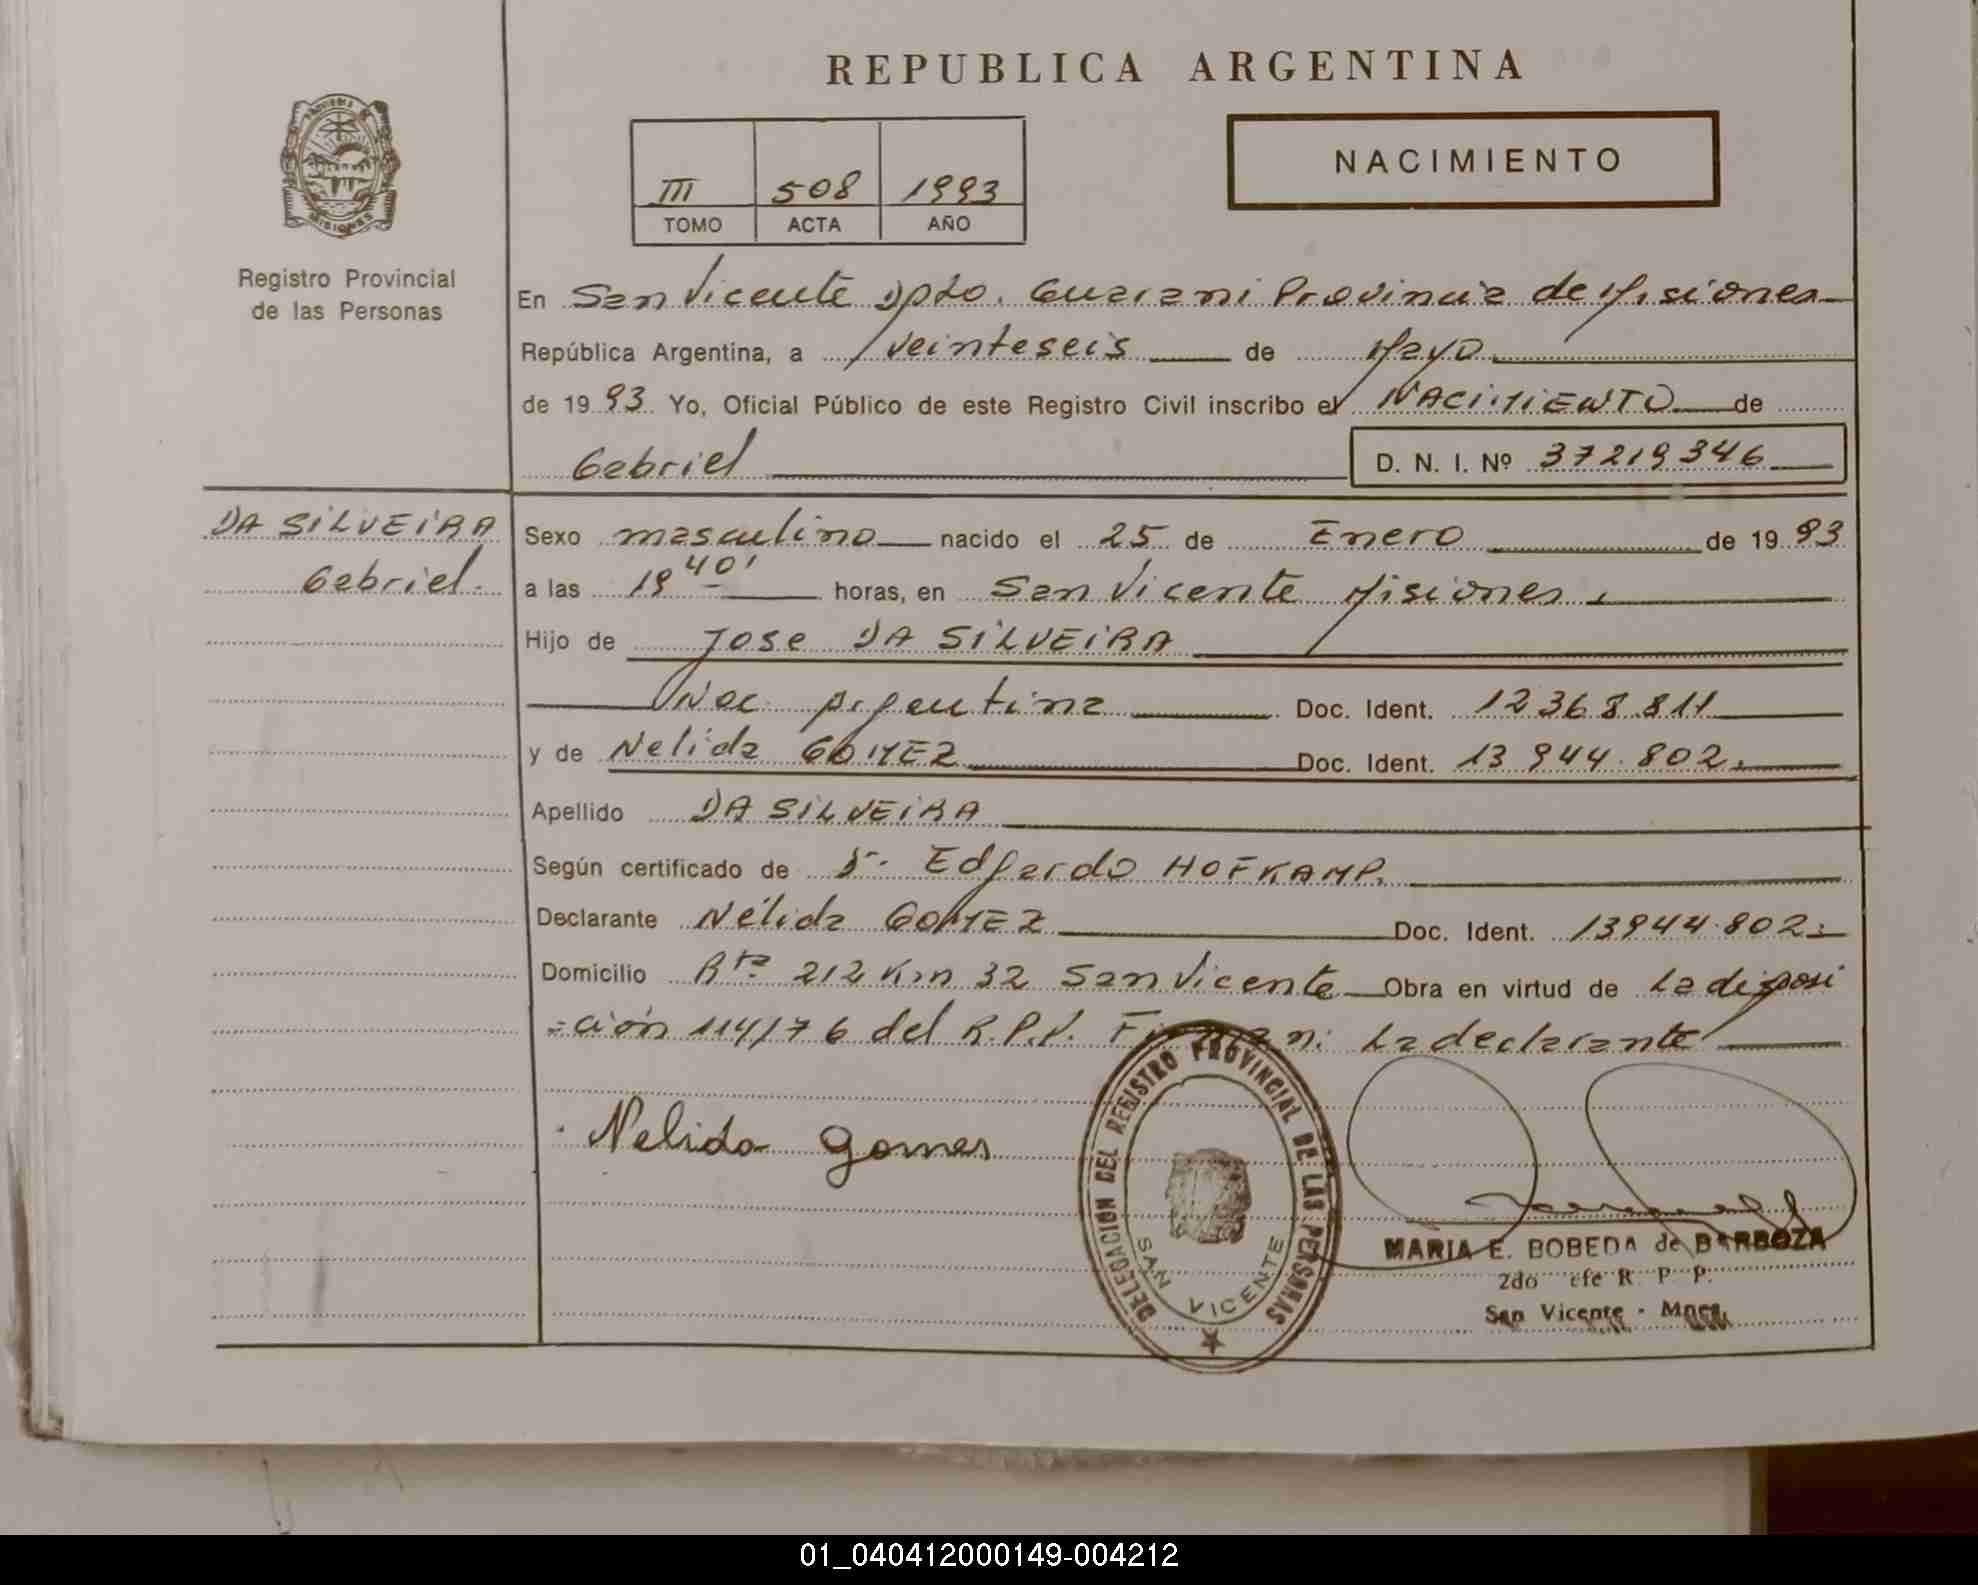 REPUBLICA ARGENTINA
NACIMIENTO
III 508 1993
TOMO ACTA AÑO
Registro Provincial
de las Personas
En San Vicente Dpto. Guarani Provincia de Misiones
República Argentina, a veinteseis de Mayo
de 1993 Yo, Oficial Público de este Registro Civil inscribo el NACIMIENTO de
Gabriel D. N. I. Nº 37219346
DA SILVEIRA
Gabriel.
Sexo masculino nacido el 25 de Enero de 1993
a las 19 40' horas, en San Vicente Misiones.
Hijo de Jose DA SILVEIRA
Nac. Argentina Doc. Ident. 12368.811
y de Nelida GOMEZ Doc. Ident. 13944.802.
Apellido DA SILVEIRA
Según certificado de Dr. Edgardo HOFKAMP.
Declarante Nélida GOMEZ Doc. Ident. 13944.802.
Domicilio Rta 212 Km 32 San Vicente Obra en virtud de La disposi
=ción 114/76 del R.P.P. Firman: La declarante
Nelida gomes
DELEGACION DEL REGISTRO PROVINCIAL DE LAS PERSONAS
SAN VICENTE
MARIA E. BOBEDA de BARBOZA
2do efe R. P P.
San Vicente - Mnes.
01_040412000149-004212